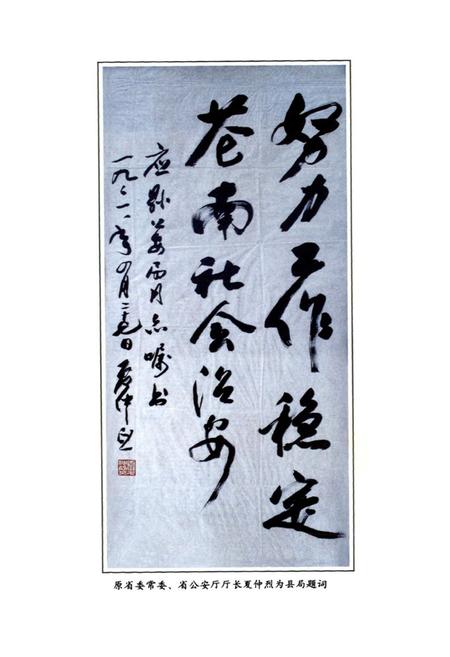 努力工作稳定
苍南社会治安
应县公安局同志嘱书
年四月二十九日夏仲烈
原省委常委、省公安厅厅长夏仲烈为县局题词